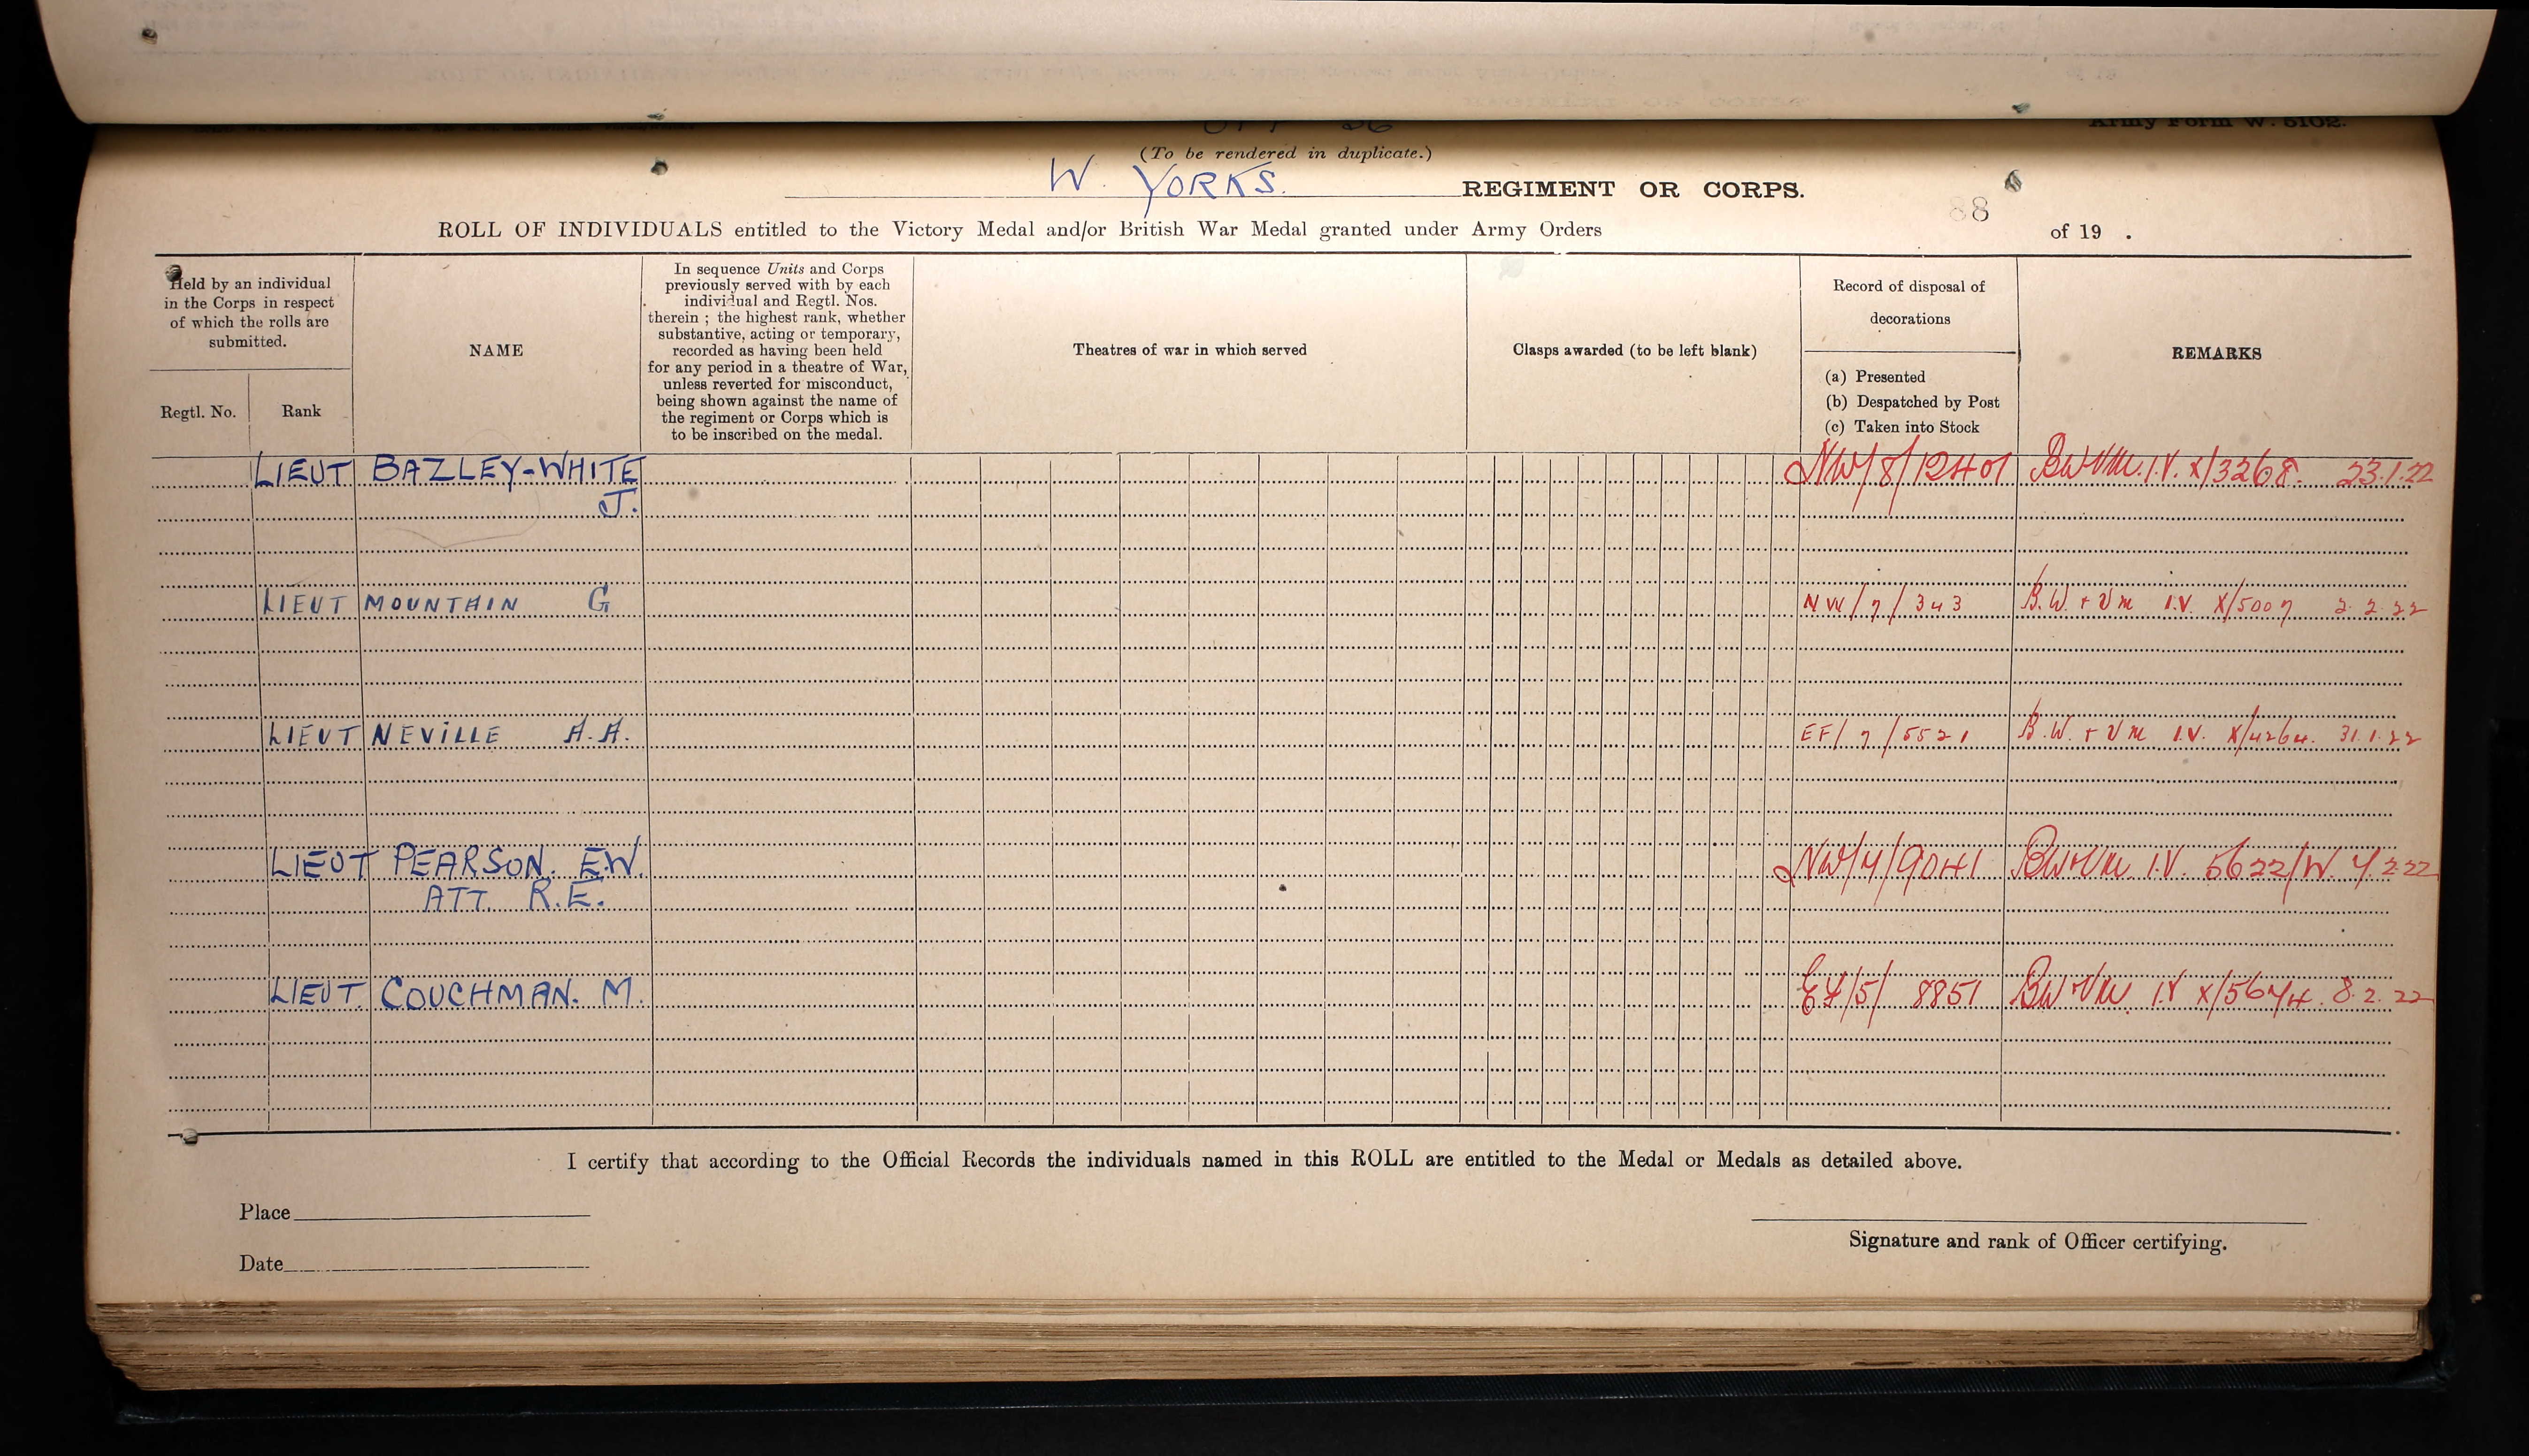 Army Form W. 5102.
(To be rendered in duplicate.)
W. YORKS. REGIMENT OR CORPS.
88
ROLL OF INDIVIDUALS entitled to the Victory Medal and/or British War Medal granted under Army Orders of 19 .
Held by an individual
in the Corps in respect
of which the rolls are
submitted.
Regtl. No. Rank
NAME
In sequence Units and Corps
previously served with by each
individual and Regtl. Nos.
therein ; the highest rank, whether
substantive, acting or temporary,
recorded as having been held
for any period in a theatre of War,
unless reverted for misconduct,
being shown against the name of
the regiment or Corps which is
to be inscribed on the medal.
Theatres of war in which served
Clasps awarded (to be left blank)
Record of disposal of
decorations
(a) Presented
(b) Despatched by Post
(c) Taken into Stock
REMARKS
LIEUT BAZLEY-WHITE NW/8/12401 BW+VM. I.V. X/3268. 23.1.22
J.
LIEUT MOUNTAIN G NW/7/343 B.W. + V M I.V. X/5007 2.2.22
LIEUT NEVILLE A.A. EF/7/5521 B.W. + V M I.V. X/4264. 31.1.22
LIEUT PEARSON. E.W. NW/4/9041 BW+VM. I.V. 5622/W. 7.2.22
ATT. R.E.
LIEUT. COUCHMAN. M. EF/5/8851 BW+VM I.V X/5674. 8.2.22
I certify that according to the Official Records the individuals named in this ROLL are entitled to the Medal or Medals as detailed above.
Place
Signature and rank of Officer certifying.
Date